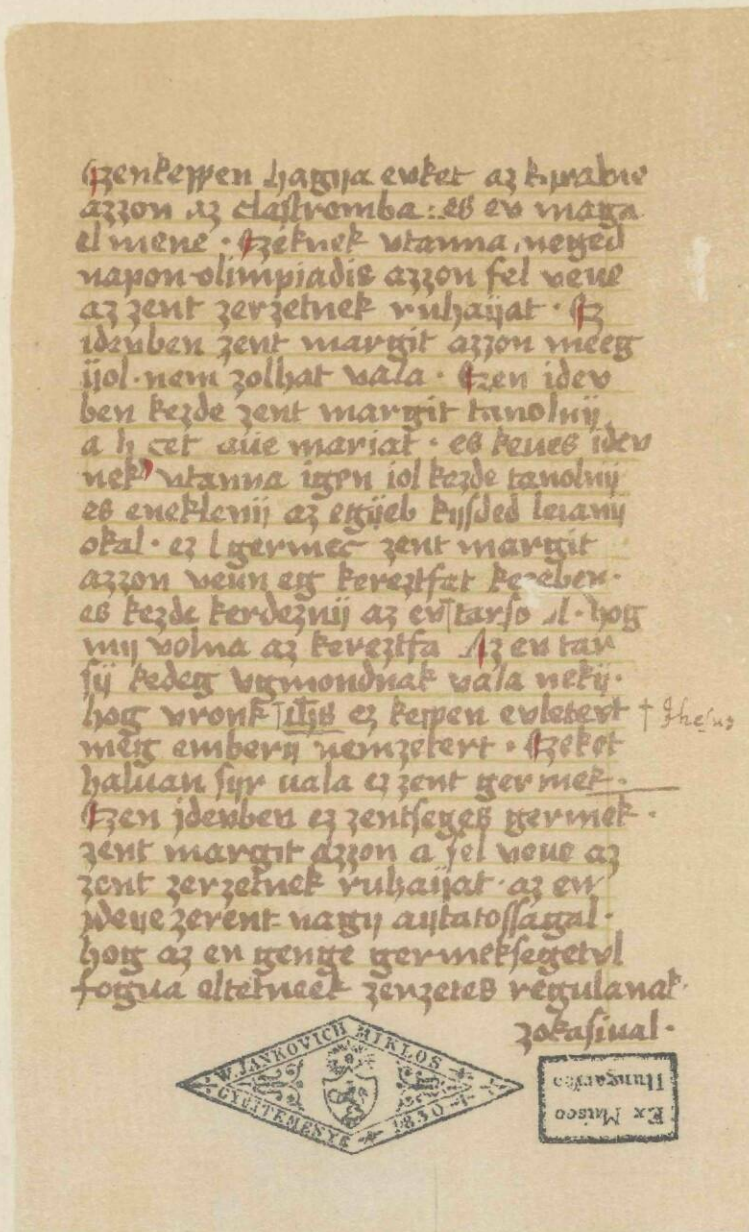 Ezenkeppen hagÿa evket az kyralne
azzon az clastromba: es ev maga
el mene · Ezeknek vtanna neged
napon olimpiadis azzon fel veue
az zent zerzetnek ruhaÿat · Ez
ideuben zent margit azzon meeg
ÿol · nem zolhat vala · Ezen idev
ben kezde zent margit tanolnÿ
a b cet aue mariat · es keues idev
nek vtanna igen iol kezde tanolnÿ
es eneklenÿ az egÿeb kÿsded leianÿ
okal · ez germec zent margit
azzon veun eg kereztfat kezeben ·
es kezde kerdeznÿ az ev hog
mÿ volna az kereztfa Az ev tar
sÿ kedeg vgmondnak vala nekÿ ·
hog vronk ihs ez keppen evletett † Ihesus
meg emberÿ nemzetert · Ezeket
haluan sÿr uala ez zent germek ·
Ezen jdeuben ez zentseges germek ·
zent margit azzon a fel veue az
zent zerzetnek ruhaÿat · az ev
jdeÿe zerent nagÿ aÿtatossagal ·
hog az ev genge germeksegetvl
fogua eltetneek zerzetes regulanak ·
zokasiual ·
W. JANKOVICH MIKLOS
GYÜJTEMÉNYE 1830
Ex Museo
Hungarico